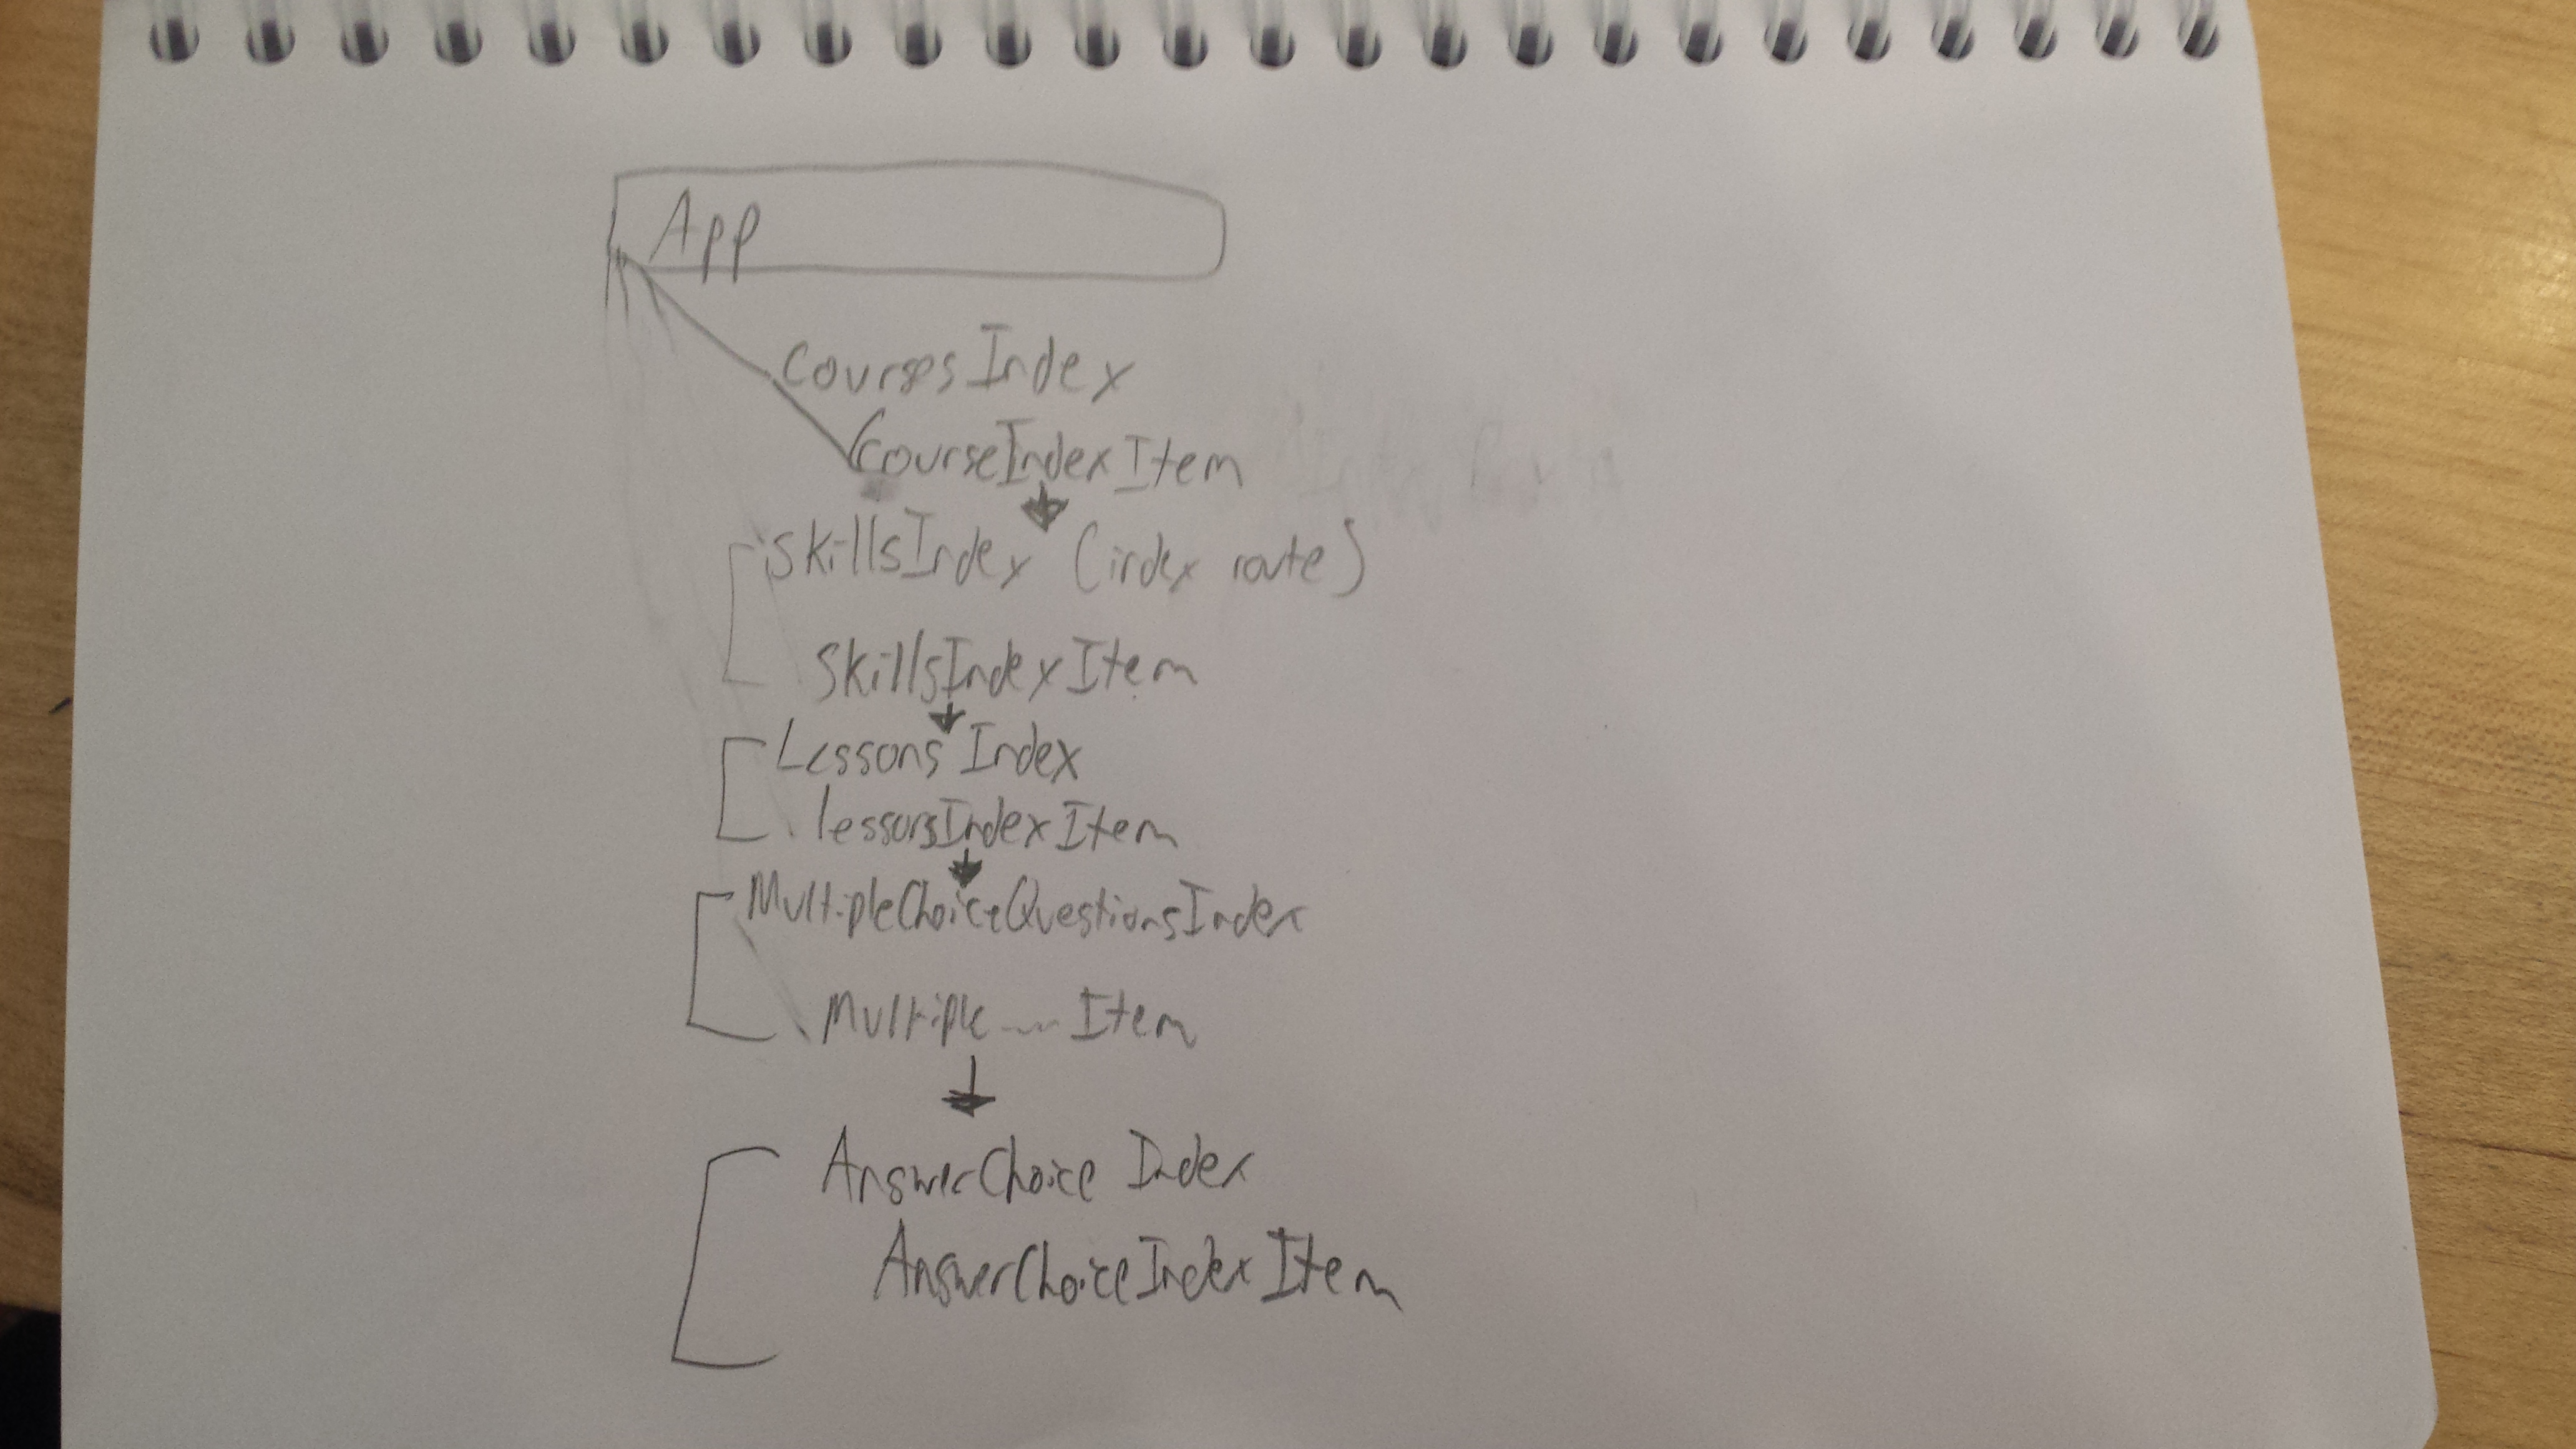 App
CoursesIndex
CourseIndexItem
SkillsIndex (index route)
SkillsIndexItem
Lessons Index
lessonsIndexItem
MultipleChoiceQuestionsIndex
Multiple.... Item
AnswerChoice Index
AnswerChoiceIndexItem